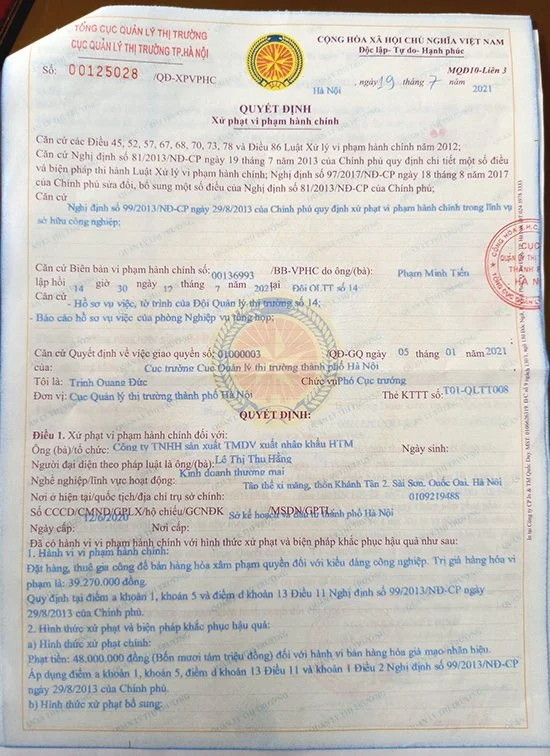 TỔNG CỤC QUẢN LÝ THỊ TRƯỜNG
CỤC QUẢN LÝ THỊ TRƯỜNG TP.HÀ NỘI
Số: 00125028 /QĐ-XPVPHC
CỘNG HÒA XÃ HỘI CHỦ NGHĨA VIỆT NAM
Độc lập- Tự do- Hạnh phúc
MQĐ10-Liên 3
Hà Nội , ngày 19 tháng 7 năm 2021
QUYẾT ĐỊNH
Xử phạt vi phạm hành chính
Căn cứ các Điều 45, 52, 57, 67, 68, 70, 73, 78 và Điều 86 Luật Xử lý vi phạm hành chính năm 2012;
Căn cứ Nghị định số 81/2013/NĐ-CP ngày 19 tháng 7 năm 2013 của Chính phủ quy định chi tiết một số điều
và biện pháp thi hành Luật Xử lý vi phạm hành chính; Nghị định số 97/2017/NĐ-CP ngày 18 tháng 8 năm 2017
của Chính phủ sửa đổi, bổ sung một số điều của Nghị định số 81/2013/NĐ-CP của Chính phủ;
Căn cứ
Nghị định số 99/2013/NĐ-CP ngày 29/8/2013 của Chính phủ quy định xử phạt vi phạm hành chính trong lĩnh vực
sở hữu công nghiệp;
Căn cứ Biên bản vi phạm hành chính số: 00136993 /BB-VPHC do ông(bà): Phạm Minh Tiến
lập hồi 14 giờ 30 ngày 12 tháng 7 năm 2021 tại Đội QLTT số 14;
Căn cứ
- Hồ sơ vụ việc, tờ trình của Đội Quản lý thị trường số 14;
- Báo cáo hồ sơ vụ việc của phòng Nghiệp vụ tổng hợp;
Căn cứ Quyết định về việc giao quyền số: 01000003 /QĐ-GQ ngày 05 tháng 01 năm 2021
của: Cục trưởng Cục Quản lý thị trường thành phố Hà Nội
Tôi là: Trịnh Quang Đức Chức vụ: Phó Cục trưởng
Đơn vị: Cục Quản lý thị trường thành phố Hà Nội Thẻ KTTT số: T01-QLTT008
QUYẾT ĐỊNH:
Điều 1. Xử phạt vi phạm hành chính đối với:
Ông (bà)/tổ chức: Công ty TNHH sản xuất TMDV xuất nhân khẩu HTM Ngày sinh:
Người đại diện theo pháp luật là ông/(bà): Lê Thị Thu Hằng
Nghề nghiệp/lĩnh vực hoạt động: Kinh doanh thương mại
Nơi ở hiện tại/quốc tịch/địa chỉ trụ sở chính: Tân thế xi măng, thôn Khánh Tân 2, Sài Sơn, Quốc Oai, Hà Nội
Số CCCD/CMND/GPLX/hộ chiếu/GCNĐK /MSDN/GPTL: 0109219488
Ngày cấp: 12/6/2020 Nơi cấp: Sở kế hoạch và đầu tư thành phố Hà Nội
Đã có hành vi vi phạm hành chính với hình thức xử phạt và biện pháp khắc phục hậu quả như sau:
1. Hành vi vi phạm hành chính:
Đặt hàng, thuê gia công để bán hàng hóa xâm phạm quyền đối với kiểu dáng công nghiệp. Trị giá hàng hóa vi
phạm là: 39.270.000 đồng.
Quy định tại điểm a khoản 1, khoản 5 và điểm d khoản 13 Điều 11 Nghị định số 99/2013/NĐ-CP ngày
29/8/2013 của Chính phủ.
2. Hình thức xử phạt và biện pháp khắc phục hậu quả:
a) Hình thức xử phạt chính:
Phạt tiền: 48.000.000 đồng (Bốn mươi tám triệu đồng) đối với hành vi bán hàng hóa giả mạo nhãn hiệu.
Áp dụng điểm a khoản 1, khoản 5, điểm d khoản 13 Điều 11 và khoản 1 Điều 2 Nghị định số 99/2013/NĐ-CP
ngày 29/8/2013 của Chính phủ.
b) Hình thức xử phạt bổ sung: